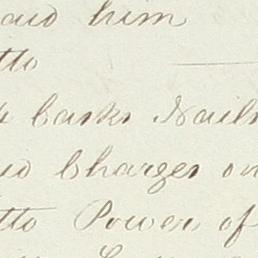 paid him
tto
Casks Nails
Charges on
tto Power of